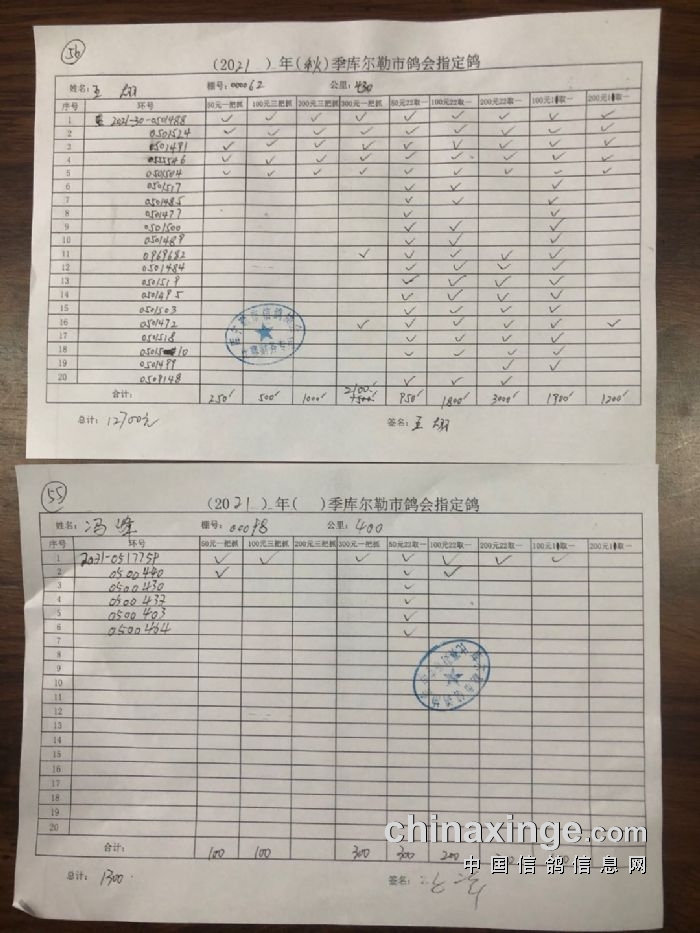 56
(2021 )年(秋)季库尔勒市鸽会指定鸽
姓名: 王 棚号: 000062 公里: 430
序号 环号 50元一把抓 100元三把抓 200元三把抓 300元一把抓 50元22取一 100元22取一 200元22取一 100元1取一 200元1取一
1 2021-30-0501488 ✓ ✓ ✓ ✓ ✓ ✓ ✓ ✓ ✓
2 0501524 ✓ ✓ ✓ ✓ ✓ ✓ ✓ ✓ ✓
3 0501491 ✓ ✓ ✓ ✓ ✓ ✓ ✓ ✓ ✓
4 ✓ ✓ ✓ ✓ ✓ ✓ ✓ ✓ ✓
5 0501504 ✓ ✓ ✓ ✓ ✓ ✓ ✓ ✓ ✓
6 0501517 ✓ ✓ ✓
7 0501485 ✓ ✓
8 0501477 ✓ ✓
9 0501500 ✓ ✓ ✓
10 0501489 ✓ ✓ ✓
11 0969682 ✓ ✓ ✓ ✓ ✓
12 0501484 ✓ ✓ ✓ ✓
13 0501519 ✓ ✓ ✓ ✓
14 0501495 ✓ ✓ ✓ ✓
15 0501503 ✓ ✓ ✓ ✓
16 0501472 ✓ ✓ ✓ ✓ ✓ ✓
17 0501518 ✓ ✓ ✓ ✓
18 ✓ ✓ ✓ ✓
19 0501499 ✓ ✓
20 0509148 ✓ ✓ ✓
合计: 250 500 1000 2100 950 1800 3000 1900 1200
总计: 12700元 签名: 王
55
(2021 )年( )季库尔勒市鸽会指定鸽
姓名: 冯 棚号: 公里: 400
序号 环号 50元一把抓 100元三把抓 200元三把抓 300元一把抓 50元22取一 100元22取一 200元22取一 100元1取一 200元1取一
1 2021-0517759 ✓ ✓ ✓ ✓ ✓ ✓ ✓
2 0500440 ✓ ✓ ✓
3 0500430 ✓
4 0500437 ✓
5 0500403 ✓
6 0500464 ✓
7
8
9
10
11
12
13
14
15
16
17
18
19
20
合计: 100 100 300 300 200
总计: 1300 签名:
chinaxinge.com
中国信鸽信息网